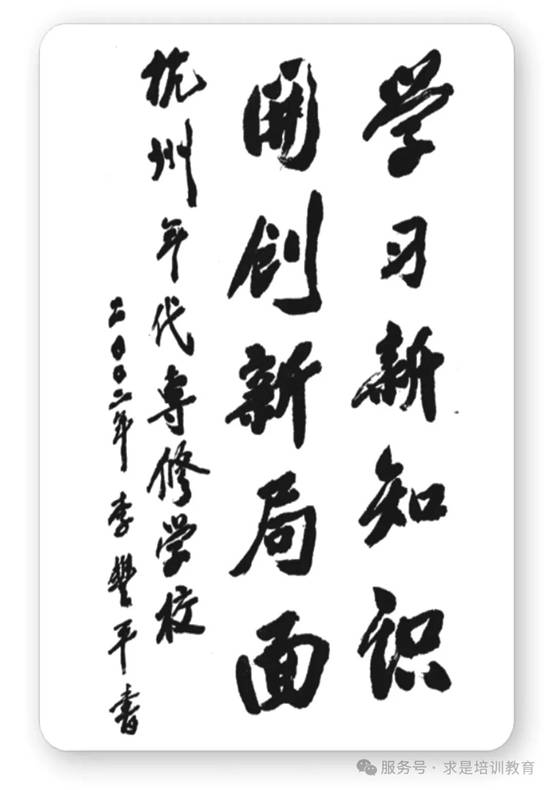 学习新知识
開创新局面
杭州年代专修学校
二〇〇二年李豐平書
服务号·求是培训教育